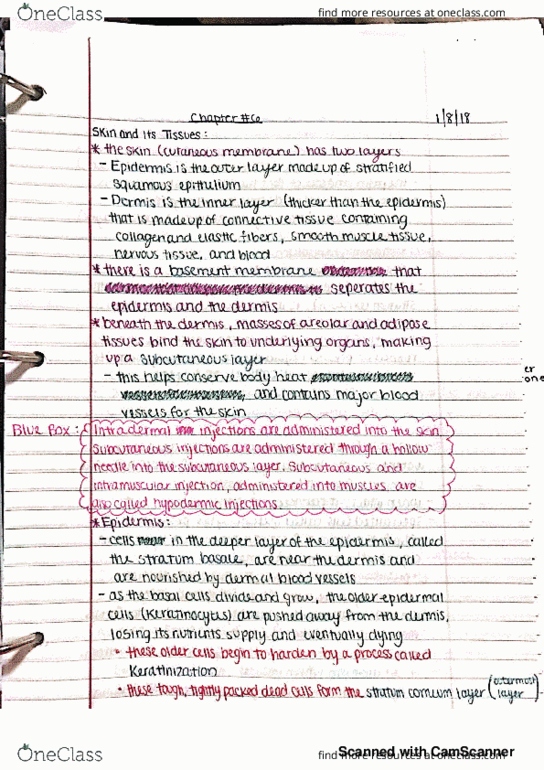 OneClass
find more resources at oneclass.com
Chapter #6
1/8/18
Skin and Its Tissues:
* the skin (cutaneous membrane) has two layers
- Epidermis is the outer layer made up of stratified
squamous epithelium
- Dermis is the inner layer (thicker than the epidermis)
that is made up of connective tissue containing
collagen and elastic fibers, smooth muscle tissue,
nervous tissue, and blood
* there is a basement membrane that
seperates the
epidermis and the dermis
* beneath the dermis, masses of areolar and adipose
tissues bind the skin to underlying organs, making
up a subcutaneous layer
- this helps conserve body heat
and contains major blood
vessels for the skin
er
one
Blue Box: Intradermal injections are administered into the skin.
Subcutaneous injections are administered through a hollow
needle into the subcutaneous layer. Subcutaneous and
intramuscular injection, administered into muscles, are
also called hypodermic injections.
* Epidermis:
- cells in the deeper layer of the epidermis, called
the stratum basale, are near the dermis and
are nourished by dermal blood vessels
- as the basal cells divide and grow, the older epidermal
cells (keratinocytes) are pushed away from the dermis,
losing its nutrients supply and eventually dying
• these older cells begin to harden by a process called
Keratinization
• these tough, tightly packed dead cells form the stratum corneum layer (outermost layer)
OneClass
find more resources at oneclass.com
Scanned with CamScanner